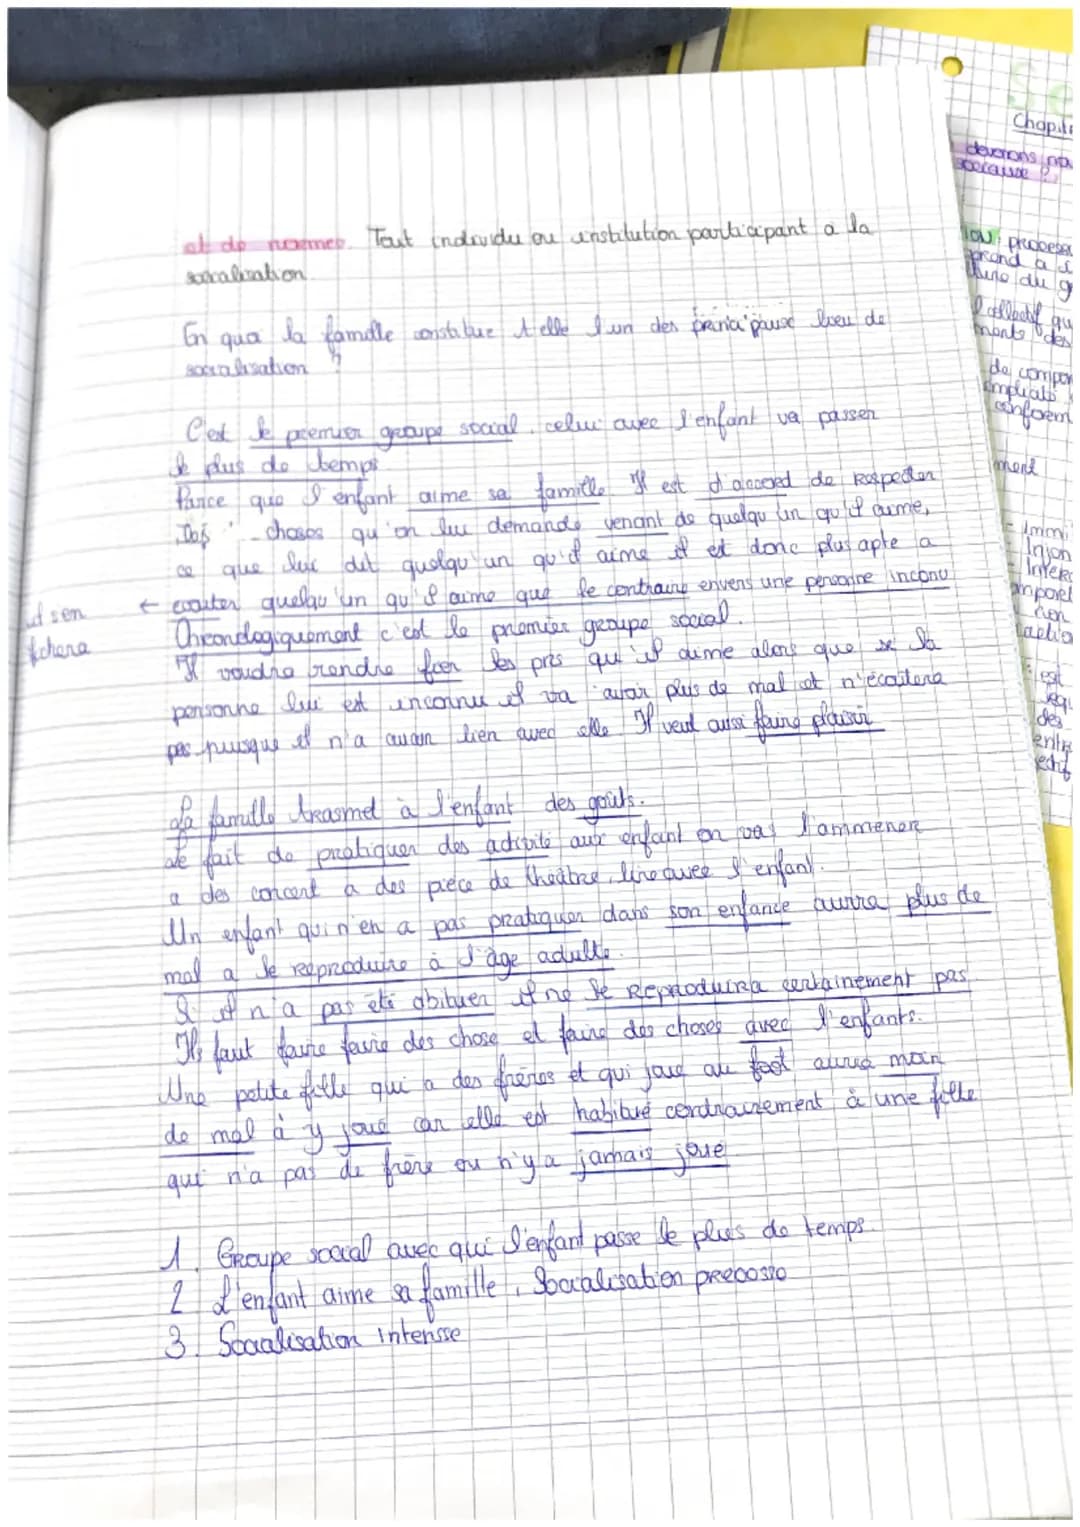 et de normes. Tout individu ou institution participant a la
socialisation
En quoi la famille constitue t elle l'un des principaux lieu de
socialisation ?
C'est le premier groupe social, celui avec l'enfant va passer
le plus de temps
Parce que l'enfant aime sa famille Il est d'accord de Respecter
Des choses qu'on lui demande venant de quelqu'un qu'il aime,
ce que lui dit quelqu'un qu'il aime il est donc plus apte a
← ecouter quelqu'un qu'il aime que le contraire envers une personne inconu
Chronologiquement c'est le premier groupe social.
Il voudra rendre fier les prs qu'il aime alors que si la
personne lui est inconnu il va avoir plus de mal et n'écoutera
pas puisque il n'a aucun lien avec elle Il veut aussi faire plaisir
La famille trasmet à l'enfant des goûts.
Le fait de pratiquer des activité aux enfant on vas l'ammener
a des concert a des piece de théâtre, lire avec l'enfant.
Un enfant qui n'en a pas pratiquer dans son enfance aurra plus de
mal a le reproduire à l'âge adulte.
Si il n'a pas été abituer il ne le Reproduira certainement pas
Ils faut faire faire des chose et faire des choses avec l'enfants.
Une petite fille qui a des frères et qui joue au foot aurra moin
de mal à y joué car elle est habitué contrairement à une fille
qui n'a pas de frère ou n'y a jamais joué
1. Groupe social avec qui l'enfant passe le plus de temps.
2 L'enfant aime sa famille, Socialisation precosse
3. Socialisation intensse
Chapit
devenons no